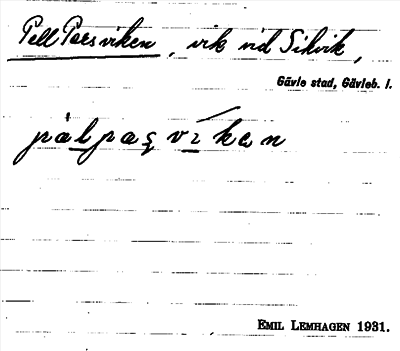 Pell Pers viken, vik vid Sikvik,
Gävle stad, Gävleb. l.
pälpaʂ víken
EMIL LEMHAGEN 1931.